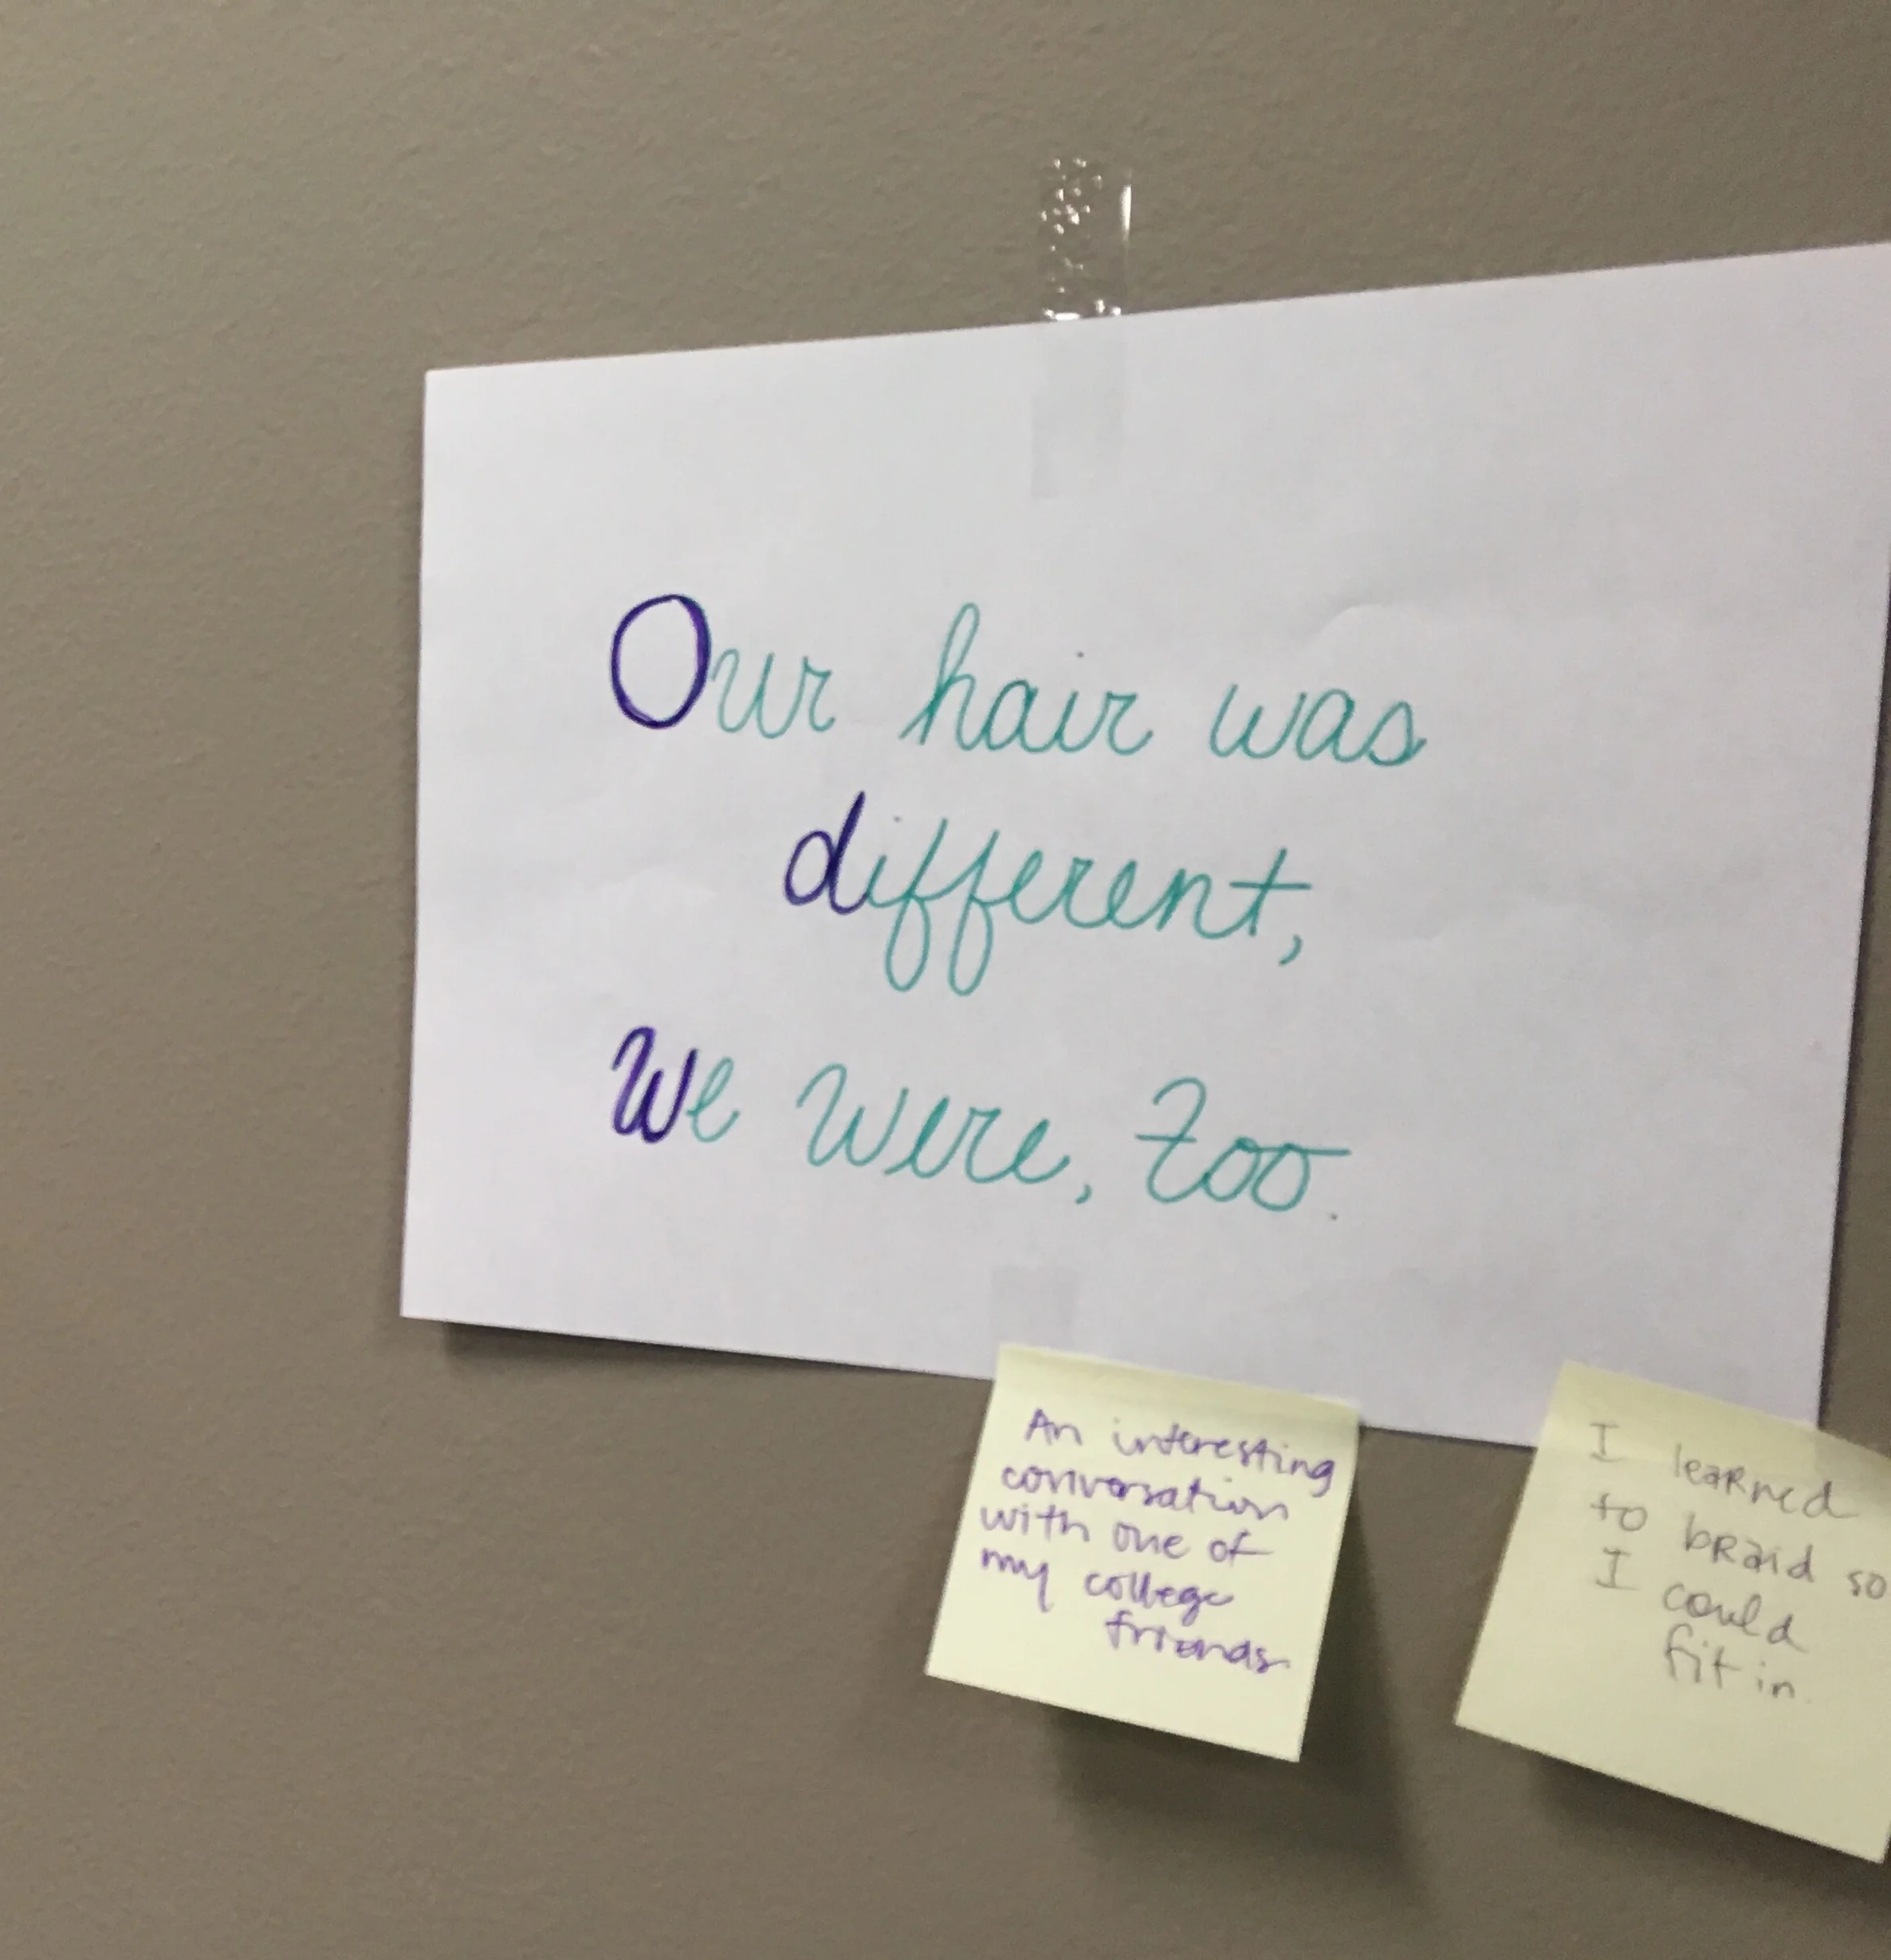 Our hair was
different,
We were, too.
An interesting
conversation
with one of
my college
friends.
I learned
to braid so
I could
fit in.